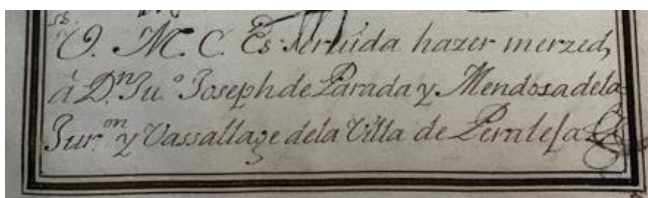 V. M. C. Es servida hazer merzed,
á D.ⁿ Ju.º Joseph de Parada y Mendosa dela
Jur.ᵒⁿ y Vassallage dela Villa de Peraleja